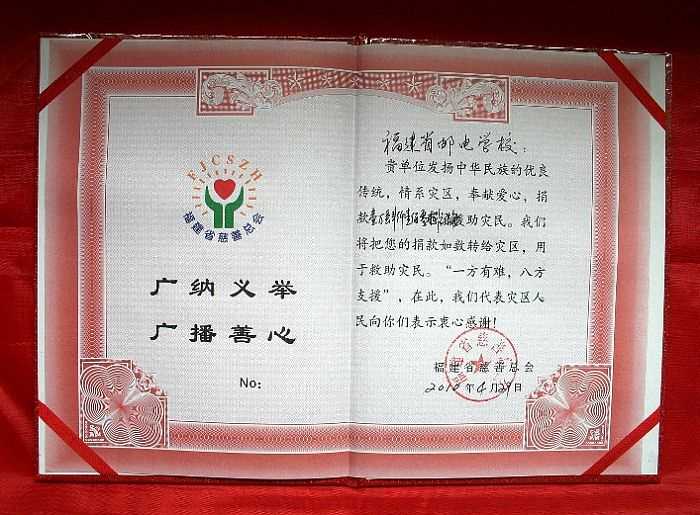 FJCSZH
福建省慈善总会
广纳义举
广播善心
No:
福建省邮电学校：
贵单位发扬中华民族的优良
传统，情系灾区，奉献爱心，捐
款救助灾民。我们
将把您的捐款如数转给灾区，用
于救助灾民。“一方有难，八方
支援”，在此，我们代表灾区人
民向你们表示衷心感谢！
福建省慈善总会
福建省慈善总会
2010年4月29日